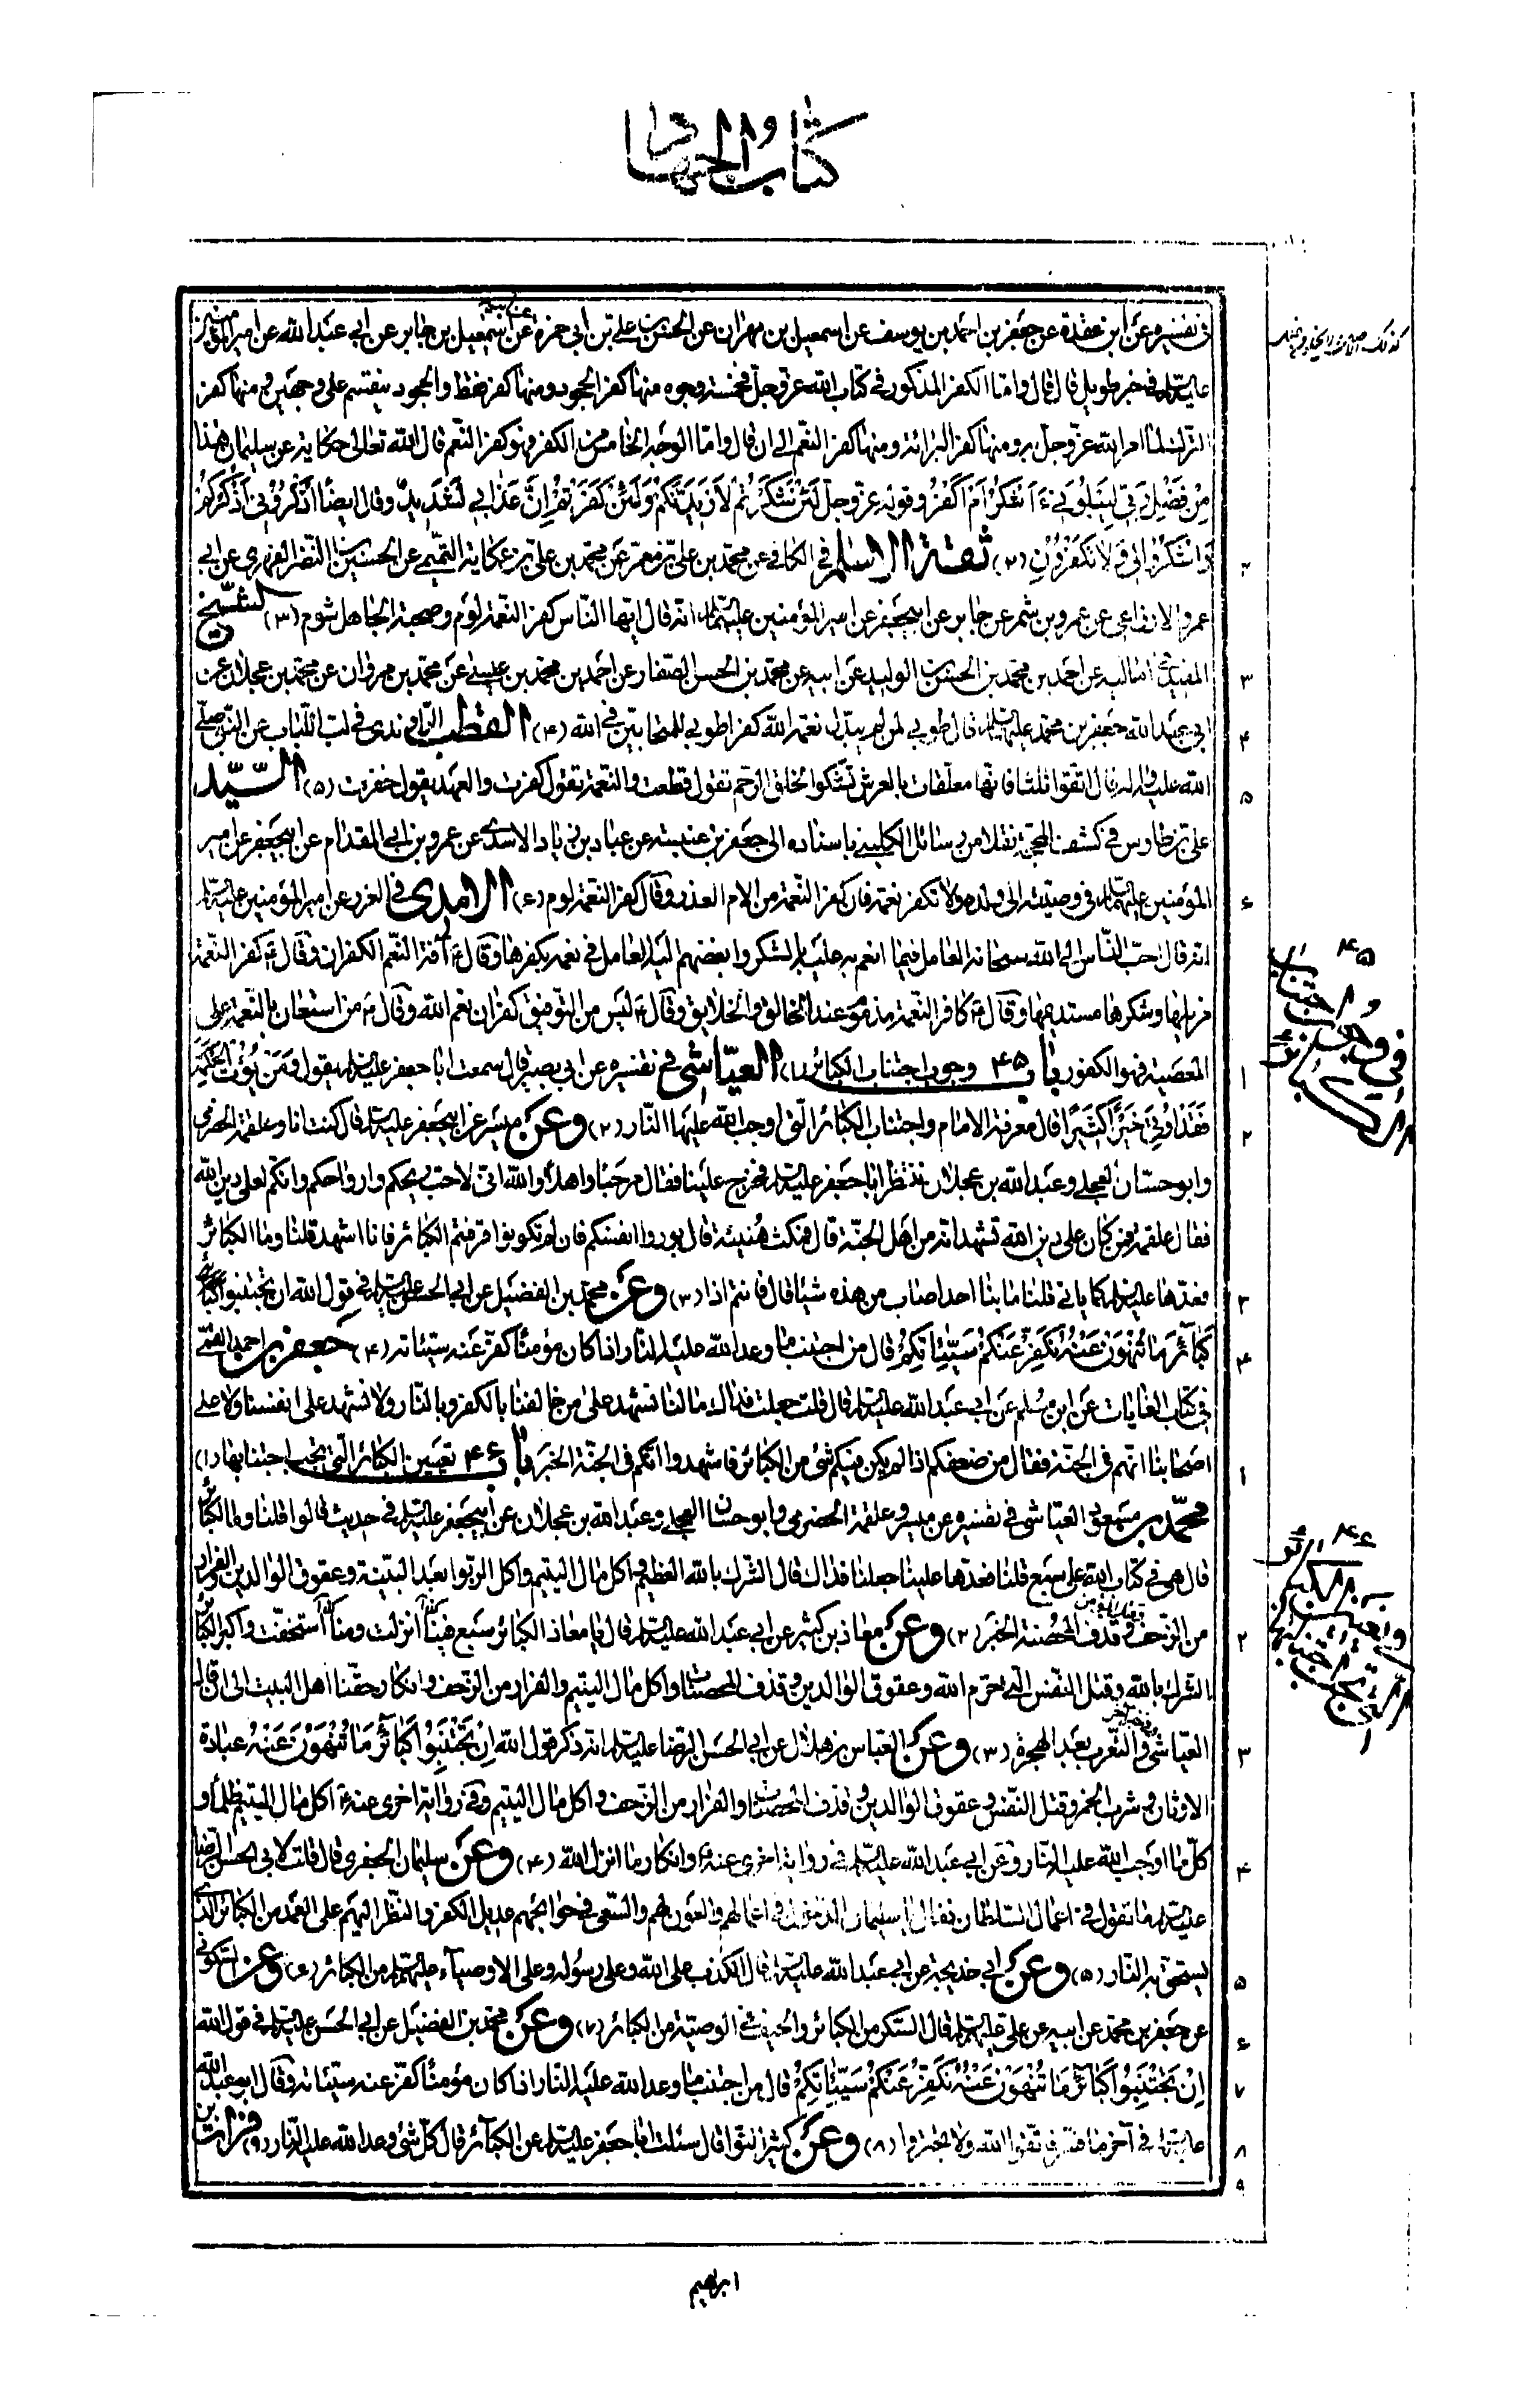 كتاب الجهاد
في تفسيره عن ابن عقدة عن جعفر بن احمد بن يوسف عن اسمعيل بن مهران عن الحسن بن علي بن ابي حمزة عن اسمعيل بن جابر عن ابي عبد الله عن امير المؤمنين
عليه السلام في خبر طويل قال قال واما الكفر المذكور في كتاب الله عز وجل فخمسة وجوه منها كفر الجحود ومنها كفر فقط والجحود ينقسم على وجهين ومنها كفر
الترك لما امر الله عز وجل به ومنها كفر البرائة ومنها كفر النعم الى ان قال واما الوجه الخامس من الكفر فهو كفر النعم قال الله تعالى حكاية عن سليمان هذا
مِنْ فَضْلِ رَبّي لِيَبْلُوَني ءَاَشْكُرُ اَمْ اَكْفُرُ وقوله عز وجل لَئِنْ شَكَرْتُمْ لَاَزيدَنَّكُمْ وَلَئِنْ كَفَرْتُمْ اِنَّ عَذابي لَشَديدٌ وقال ايضا اُذْكُرُوني اَذْكُرْكُمْ
وَاشْكُرُوا لي وَلا تَكْفُرُونِ (٢) ثقة الاسلام في الكافي عن محمد بن علي بن معمر عن محمد بن علي بن عكاية التميمي عن الحسين بن النضر الفهري عن ابي
عمرو الاوزاعي عن عمرو بن شمر عن جابر عن ابي جعفر عن امير المؤمنين عليهما السلام انه قال ايها الناس كفر النعمة لؤم وصحبة الجاهل شوم (٣) الشيخ
المفيد في اماليه عن احمد بن محمد بن الحسن بن الوليد عن ابيه عن محمد بن الحسن الصفار عن احمد بن محمد بن عيسى عن محمد بن مروان عن محمد بن عجلان عن
ابي عبد الله جعفر بن محمد عليهما السلام قال طوبى لمن لم يبدل نعمة الله كفرا طوبى للمتحابين في الله (٤) القطب الراوندي في لب اللباب عن النبي صلى
الله عليه واله قال اتقوا ثلثا فانها معلقات بالعرش تشكوا الخلق الرحم تقول قطعت والنعمة تقول كفرت والعهد يقول خفرت (٥) السيد
علي بن طاوس في كشف المحجة نقلا من رسائل الكليني باسناده الى جعفر بن عنبسة عن عباد بن زياد الاسدي عن عمرو بن ابي المقدام عن ابي جعفر عن امير
المؤمنين عليهما السلام في وصيته الى ولده ولا تكفر نعمة فان كفر النعمة من الام العذر وقال كفر النعمة لوم (٦) الامدي في الغرر عن امير المؤمنين عليه السلام
انه قال احب الناس الى الله سبحانه العامل فيما انعم به عليه بالشكر وابغضهم اليه العامل في نعمه بكفرها وقال ع آفة النعم الكفران وقال ع كفر النعمة
مزيلها وشكرها مستديمها وقال ع كافر النعمة مذموم عند الخالق والخلايق وقال ع ليس من التوفيق كفران نعم الله وقال ع من استعان بالنعمة على
المعصية فهو الكفور باب ٤٥ وجوب اجتناب الكبائر (١) العياشي في تفسيره عن ابي بصير قال سمعت ابا جعفر عليه السلام يقول وَمَنْ يُؤْتَ الْحِكْمَةَ
فَقَدْ اُوتِيَ خَيْرًا كَثيرًا قال معرفة الامام واجتناب الكبائر التي اوجب الله عليها النار (٢) وعن ميسر عن ابي جعفر عليه السلام قال كنت انا وعلقمة الحضرمي
وابو حسان العجلي وعبد الله بن عجلان ننتظر ابا جعفر عليه السلام فخرج علينا فقال مرحبا واهلا والله اني لاحب ريحكم وارواحكم وانكم لعلى دين الله
فقال علقمة فمن كان على دين الله تشهد انه من اهل الجنة قال فمكث هنيئة قال بوروا انفسكم فان لم تكونوا قرفتم الكبائر فانا اشهد قلنا وما الكبائر
فعدها عليه السلام كما ياتي قلنا ما بنا احد اصاب من هذه شيئا قال فانتم اذا (٣) وعن محمد بن الفضيل عن ابي الحسن عليه السلام في قول الله ان تجتنبوا
كَبآئِرَ ما تُنْهَوْنَ عَنْهُ نُكَفِّرْ عَنْكُمْ سَيِّئاتِكُمْ قال من اجتنب ما وعد الله عليه النار اذا كان مؤمنا كفر عنه سيئاته (٤) جعفر بن احمد القمي
في كتاب الغايات عن ابن مسلم عن ابي عبد الله عليه السلام قال قلت جعلت فداك ما لنا نشهد على من خالفنا بالكفر وبالنار ولا نشهد على انفسنا ولا على
اصحابنا انهم في الجنة فقال من ضعفكم اذا لم يكن فيكم شئ من الكبائر فاشهدوا انكم في الجنة الخبر باب ٤٦ تعيين الكبائر التي يجب اجتنابها (١)
محمد بن مسعود العياشي في تفسيره عن ميسر وعلقمة الحضرمي وابو حسان العجلي وعبد الله بن عجلان عن ابي جعفر عليه السلام في حديث قالوا قلنا وما الكبائر
قال هي في كتاب الله على سبع قلنا فعدها علينا جعلنا فداك قال الشرك بالله العظيم واكل مال اليتيم واكل الربوا بعد البينة وعقوق الوالدين والفرار
من الزحف وقتل المؤمن وقذف المحصنة الخبر (٢) وعن معاذ بن كثير عن ابي عبد الله عليه السلام قال يا معاذ الكبائر سبع فينا انزلت ومنا استخفت واكبر الكبائر
الشرك بالله وقتل النفس التي حرم الله وعقوق الوالدين وقذف المحصنات واكل مال اليتيم والفرار من الزحف وانكار حقنا اهل البيت الى ان قال
العياشي والتعرب بعد الهجرة (٣) وعن العباس بن هلال عن ابي الحسن الرضا عليه السلام انه ذكر قول الله اِنْ تَجْتَنِبُوا كَبآئِرَ ما تُنْهَوْنَ عَنْهُ عبادة
الاوثان وشرب الخمر وقتل النفس وعقوق الوالدين وقذف المحصنات والفرار من الزحف واكل مال اليتيم وفي رواية اخرى عنه ع اكل مال اليتيم ظلما و
كل ما اوجب الله عليه النار وعن ابي عبد الله عليه السلام في رواية اخرى عنه ع وانكار ما انزل الله (٤) وعن سليمان الجعفري قال قلت لابي الحسن الرضا
عليه السلام ما تقول في اعمال السلطان فقال يا سليمان الدخول في اعمالهم والعون لهم والسعي في حوائجهم عديل الكفر والنظر اليهم على العمد من الكبائر التي
يستحق به النار (٥) وعن ابي خديجة عن ابي عبد الله عليه السلام قال الكذب على الله وعلى رسوله وعلى الاوصياء عليهم السلام من الكبائر (٦) وعن السكوني
عن جعفر بن محمد عن ابيه عن علي عليهم السلام قال السكر من الكبائر والحيف في الوصية من الكبائر (٧) وعن محمد بن الفضيل عن ابي الحسن عليه السلام في قول الله
اِنْ تَجْتَنِبُوا كَبآئِرَ ما تُنْهَوْنَ عَنْهُ نُكَفِّرْ عَنْكُمْ سَيِّئاتِكُمْ قال من اجتنب ما وعد الله عليه النار اذا كان مؤمنا كفر عنه سيئاته وقال ابو عبد الله
عليه السلام في آخر ما فسر فاتقوا الله ولا تجتروا (٨) وعن كثير النوا قال سئلت ابا جعفر عليه السلام عن الكبآئر قال كل شئ وعد الله عليه النار (٩) فرات بن
٤٥
في وجوب اجتناب الكبائر
٤٦
ابرهيم